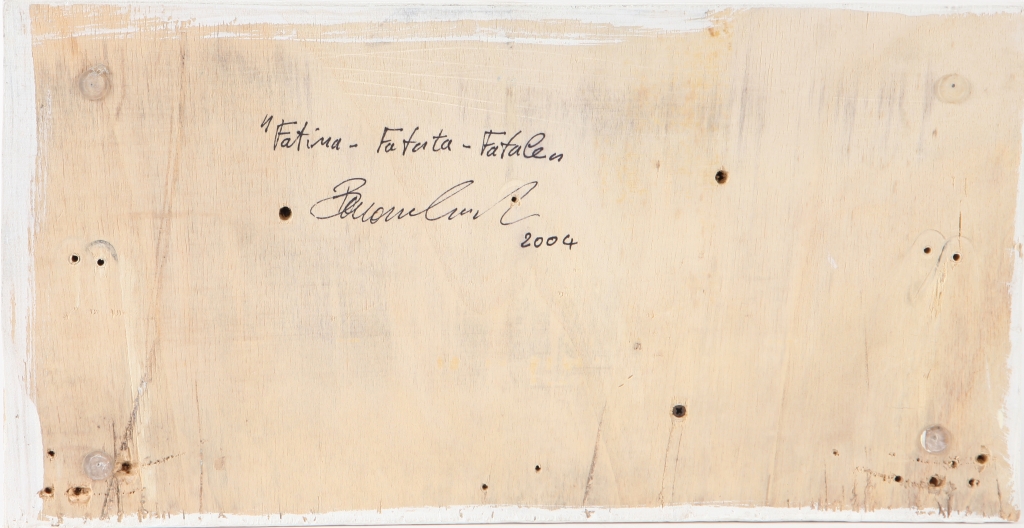 "Fatina - Fatata - Fatale"
2004